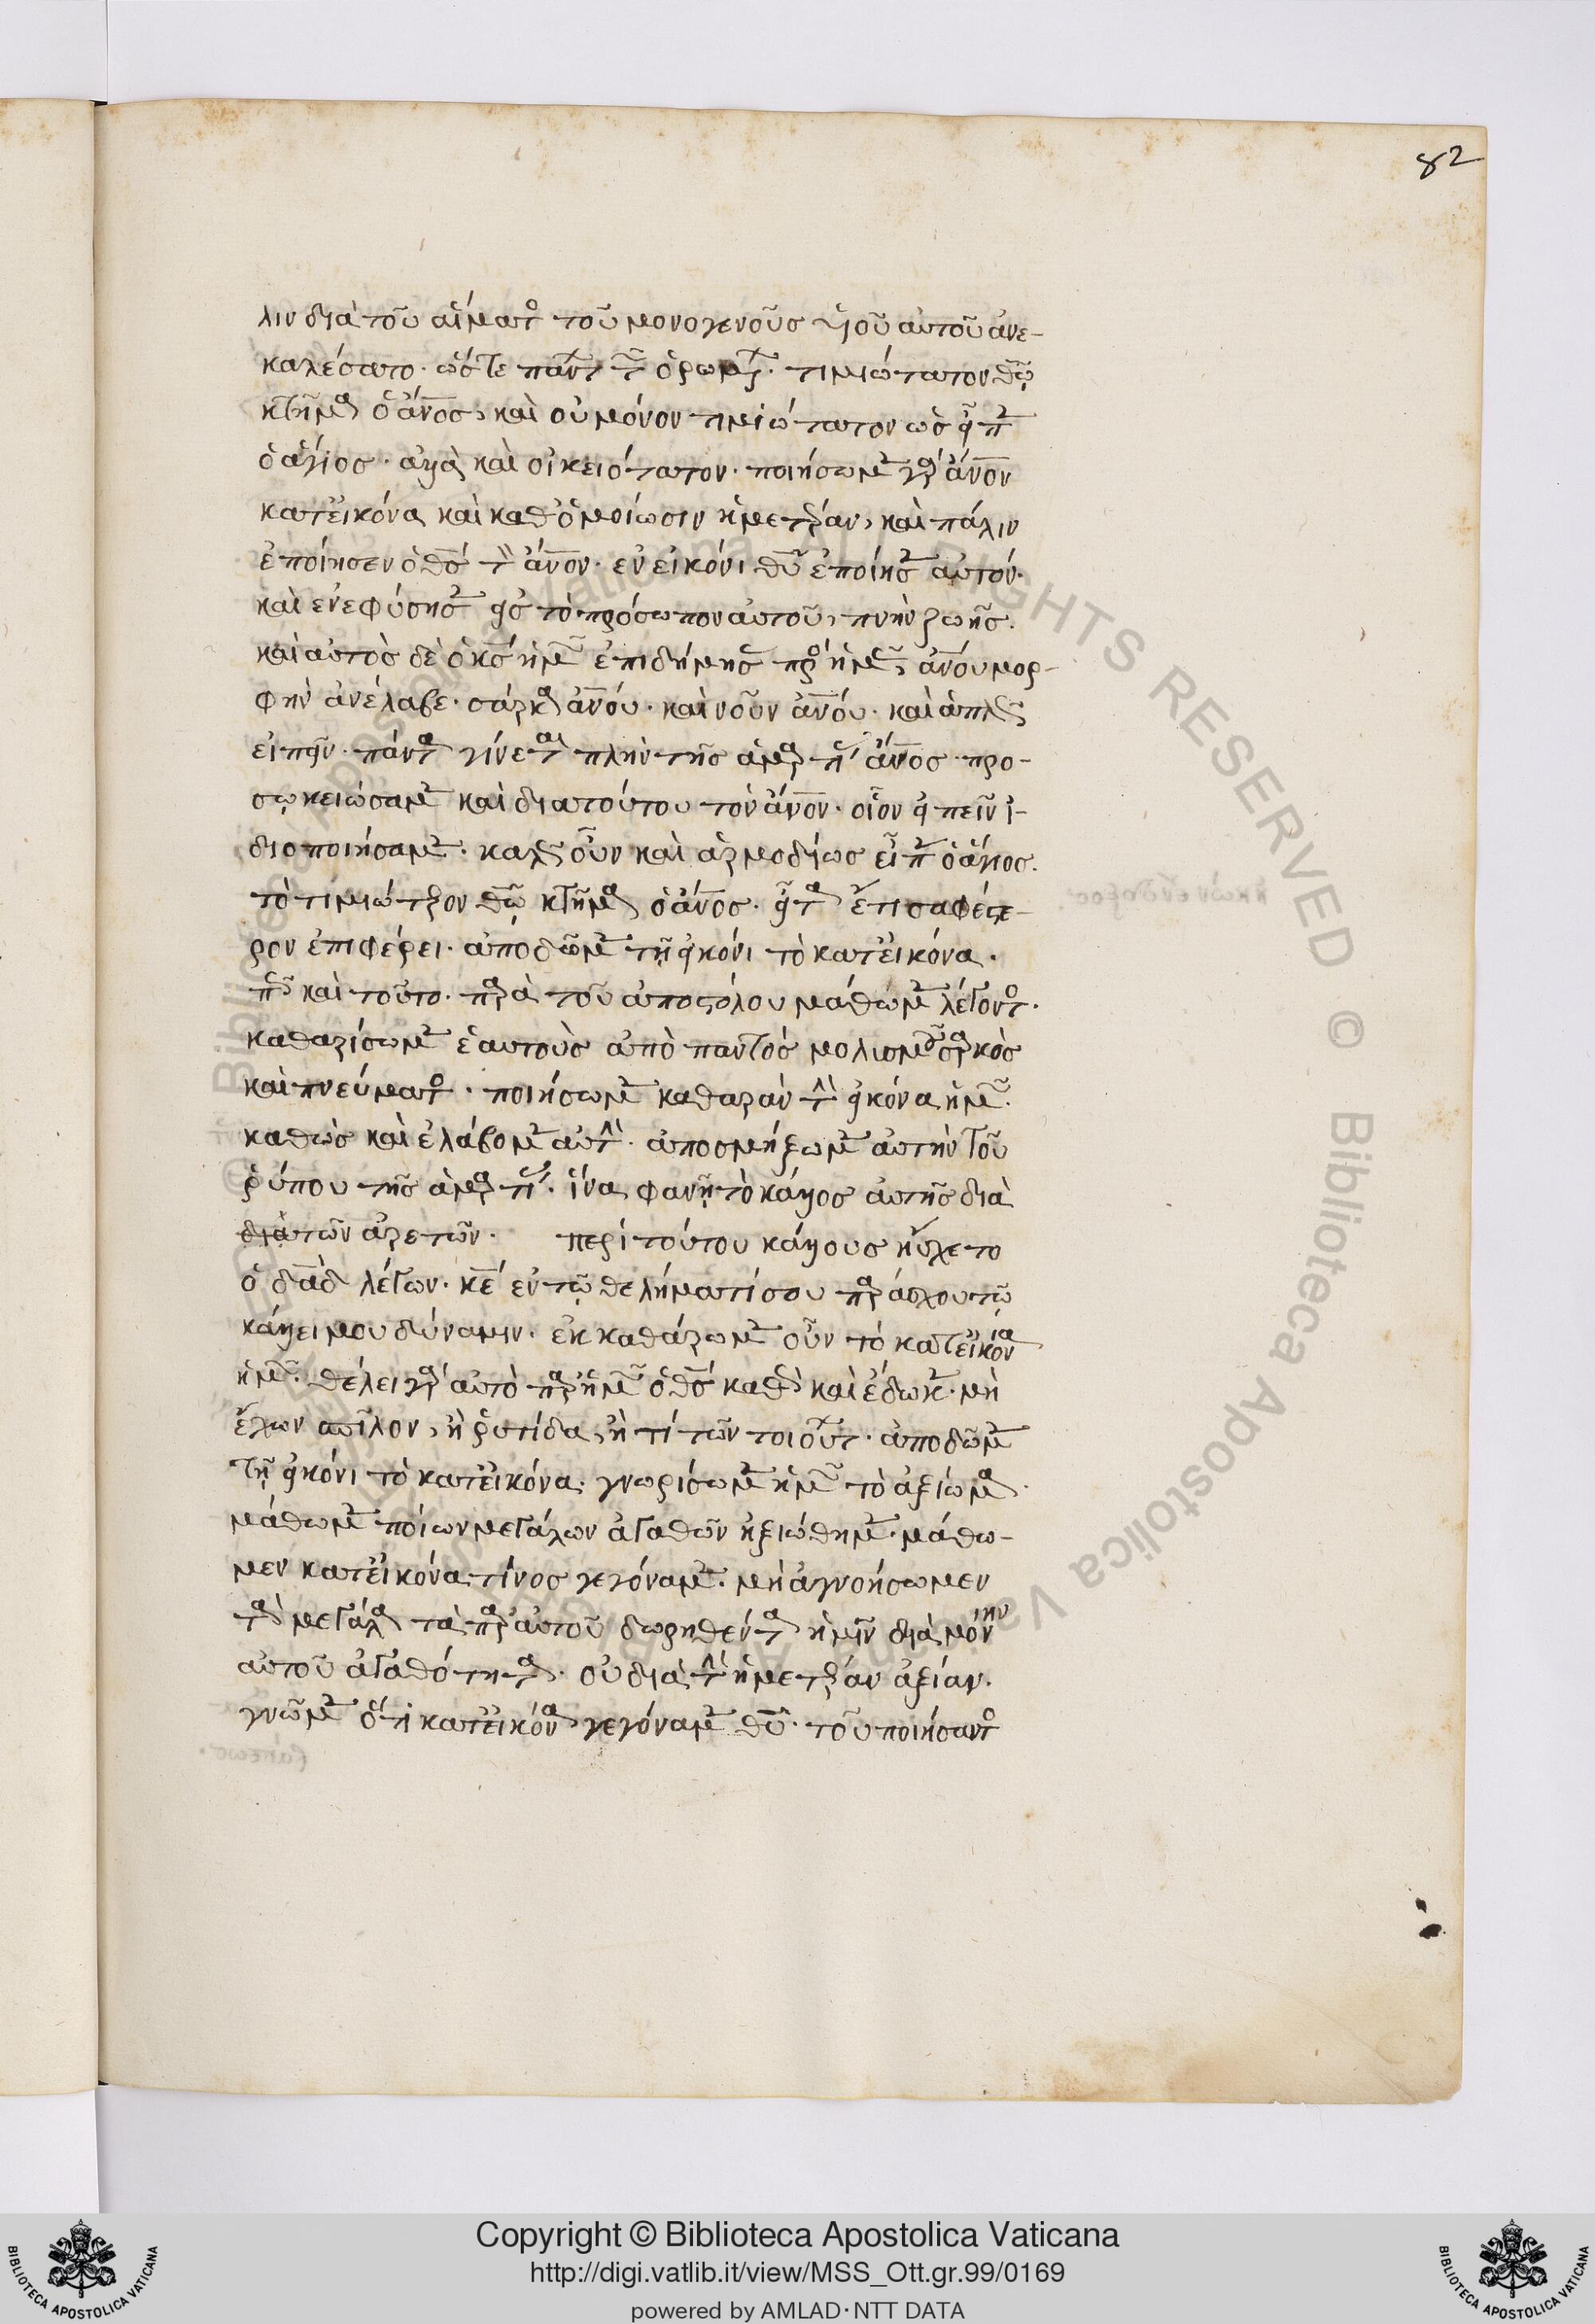 82
λιν διὰ τοῦ αἵματος τοῦ μονογενοῦς υἱοῦ αὐτοῦ ἀνε-
καλέσατο· ὥστε πάντων τῶν ὁρωμένων· τιμιώτατον θῷ
κτῆμα ὁ ἄνος, καὶ οὐ μόνον τιμιώτατον ὡς εἶπεν
ὁ ἅγιος· ἀλλὰ καὶ οἰκειότατον· ποιήσωμεν γὰρ ἄνον
κατεἰκόνα καὶ καθ' ὁμοίωσιν ἡμετέραν, καὶ πάλιν
ἐποίησεν ὁ θς τὸν ἄνον· ἐν εἰκόνι θῦ ἐποίησεν αὐτόν·
καὶ ἐνεφύσησεν εἰς τὸ πρόσωπον αὐτοῦ, πνὴν ζωῆς·
καὶ αὐτὸς δὲ ὁ κς ἡμῶν ἐπιδημήσας πρὸς ἡμᾶς, ἀνου μορ-
φὴν ἀνέλαβε· σάρκα ἀνου· καὶ νοῦν ἀνου· καὶ ἁπλῶς
εἰπεῖν· πάντα γίνεται πλὴν τῆς ἁμαρτίας ἄνος· προ-
σῳκειώσαμεν καὶ διατούτου τὸν ἄνον· οἷον εἰπεῖν ἰ-
διοποιήσαμεν· καλῶς οὖν καὶ ἁρμοδίως εἶπεν ὁ ἅγιος·
τὸ τιμιώτερον θῷ κτῆμα ὁ ἄνος· εἶτα ἔτι σαφέστε-
ρον ἐπιφέρει· ἀποδῶμεν τῇ εἰκόνι τὸ κατεἰκόνα·
πῶς καὶ τοῦτο· παρὰ τοῦ ἀποστόλου μάθωμεν λέγοντος·
καθαρίσωμεν ἑαυτοὺς ἀπὸ παντὸς μολισμοῦ σαρκὸς
καὶ πνεύματος· ποιήσωμεν καθαρὰν τὴν εἰκόνα ἡμῶν·
καθὼς καὶ ἐλάβομεν αὐτήν· ἀποσμήξωμεν αὐτὴν τοῦ
ῥύπου τῆς ἁμαρτίας· ἵνα φανῇ τὸ κάλλος αὐτῆς διὰ
διὰ τῶν ἀρετῶν· περὶ τούτου κάλλους ηὔχετο
ὁ δαδ λέγων· κε ἐν τῷ θελήματί σου παράσχου τῷ
κάλλει μου δύναμιν· ἐκκαθάρωμεν οὖν τὸ κατεἰκόνα
ἡμῶν· θέλει γὰρ αὐτὸ παρ' ἡμῶν ὁ θς καθὼς καὶ ἔδωκεν· μὴ
ἔχων σπῖλον, ἢ ῥυτίδα, ἤ τι τῶν τοιούτων· ἀποδῶμεν
τῇ εἰκόνι τὸ κατεἰκόνα· γνωρίσωμεν ἡμῶν τὸ ἀξίωμα·
μάθωμεν ποίων μεγάλων ἀγαθῶν ἠξιώθημεν· μάθω-
μεν κατεἰκόνα τίνος γεγόναμεν· μὴ ἀγνοήσωμεν
τὰ μεγάλα τὰ παρ' αὐτοῦ δωρηθέντα ἡμῖν διὰ μόνην
αὐτοῦ ἀγαθότητα· οὐ διὰ τὴν ἡμετέραν ἀξίαν·
γνῶμεν ὅτι κατεἰκόνα γεγόναμεν θῦ· τοῦ ποιήσαντος
© Biblioteca Apostolica Vaticana ALL RIGHTS RESERVED © Biblioteca Apostolica Vaticana
Copyright © Biblioteca Apostolica Vaticana
http://digi.vatlib.it/view/MSS_Ott.gr.99/0169
powered by AMLAD·NTT DATA
BIBLIOTECA APOSTOLICA VATICANA
BIBLIOTECA APOSTOLICA VATICANA